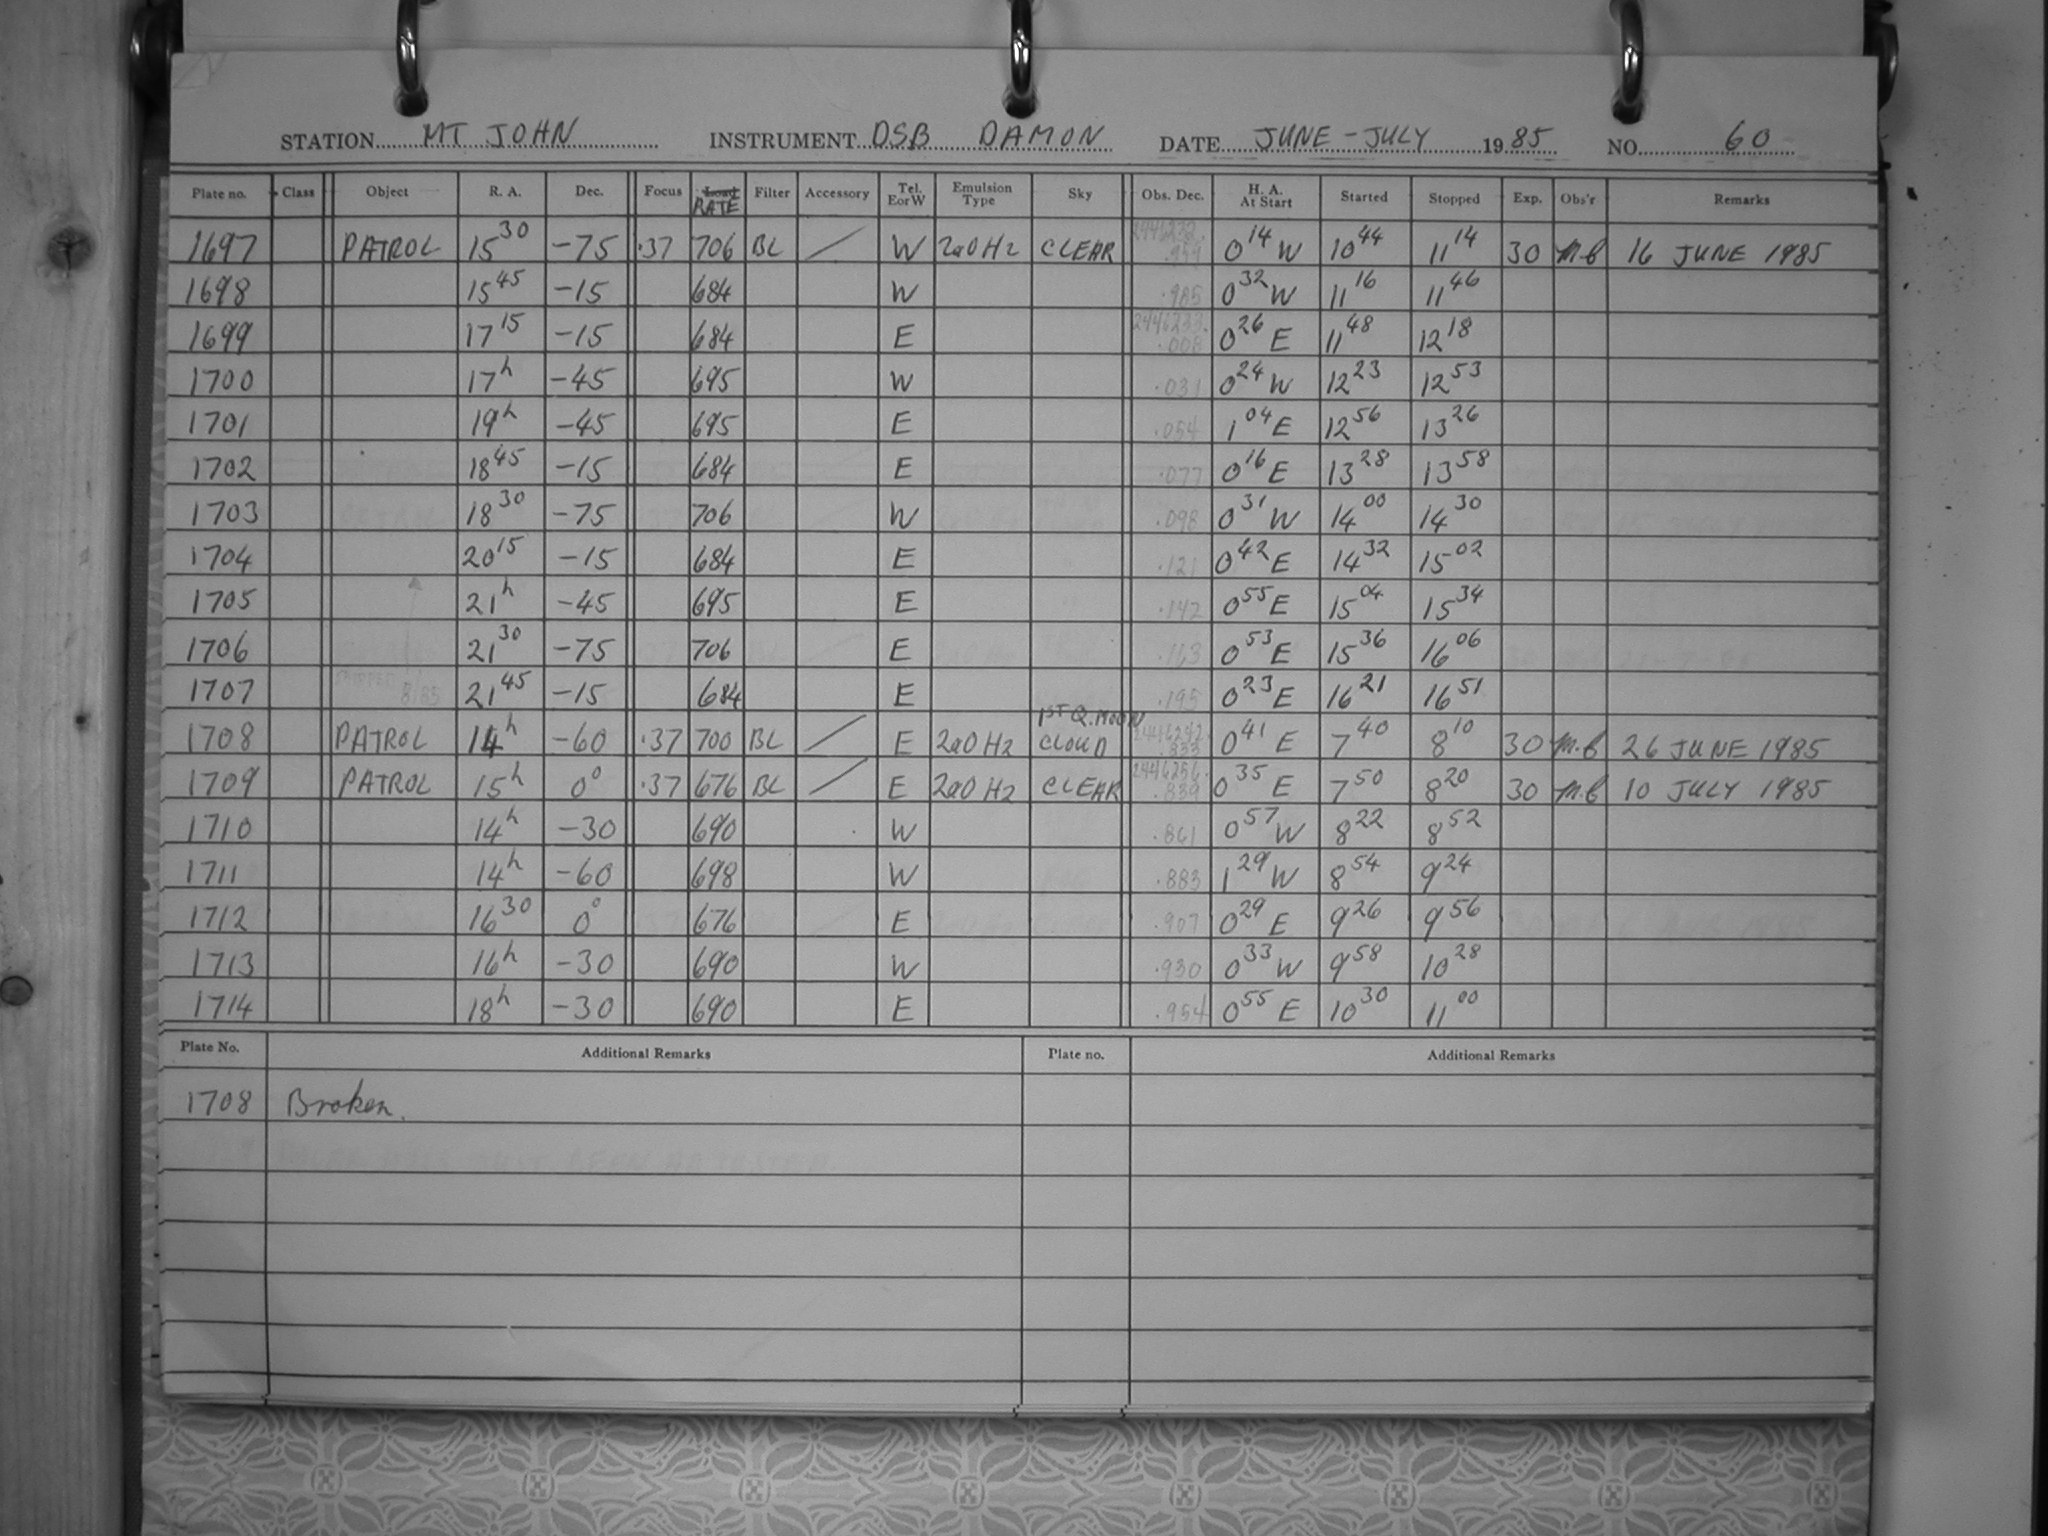 STATION MT JOHN INSTRUMENT DSB DAMON DATE JUNE-JULY 1985 NO. 60
Plate no. Class Object R. A. Dec. Focus Load RATE Filter Accessory Tel. EorW Emulsion Type Sky Obs. Dec. H. A. At Start Started Stopped Exp. Obs'r Remarks
1697 PATROL 15 30 -75 .37 706 BL / W 2a0 H2 CLEAR 2446232. .959 0 14 W 10 44 11 14 30 M.B 16 JUNE 1985
1698 15 45 -15 684 W .985 0 32 W 11 16 11 46
1699 17 15 -15 684 E 2446233. .008 0 26 E 11 48 12 18
1700 17h -45 695 W .031 0 24 W 12 23 12 53
1701 19h -45 695 E .054 1 04 E 12 56 13 26
1702 18 45 -15 684 E .077 0 16 E 13 28 13 58
1703 18 30 -75 706 W .098 0 31 W 14 00 14 30
1704 20 15 -15 684 E .121 0 42 E 14 32 15 02
1705 21h -45 695 E .142 0 55 E 15 04 15 34
1706 21 30 -75 706 E .163 0 53 E 15 36 16 06
1707 21 45 -15 684 E .195 0 23 E 16 21 16 51
1708 PATROL 14h -60 .37 700 BL / E 2a0 H2 1ST Q. MOON CLOUD 2446242. .833 0 41 E 7 40 8 10 30 M.B 26 JUNE 1985
1709 PATROL 15h 0° .37 676 BL / E 2a0 H2 CLEAR 2446256. .839 0 35 E 7 50 8 20 30 M.B 10 JULY 1985
1710 14h -30 690 W .861 0 57 W 8 22 8 52
1711 14h -60 698 W .883 1 29 W 8 54 9 24
1712 16 30 0° 676 E .907 0 29 E 9 26 9 56
1713 16h -30 690 W .930 0 33 W 9 58 10 28
1714 18h -30 690 E .954 0 55 E 10 30 11 00
Plate No. Additional Remarks Plate no. Additional Remarks
1708 Broken.